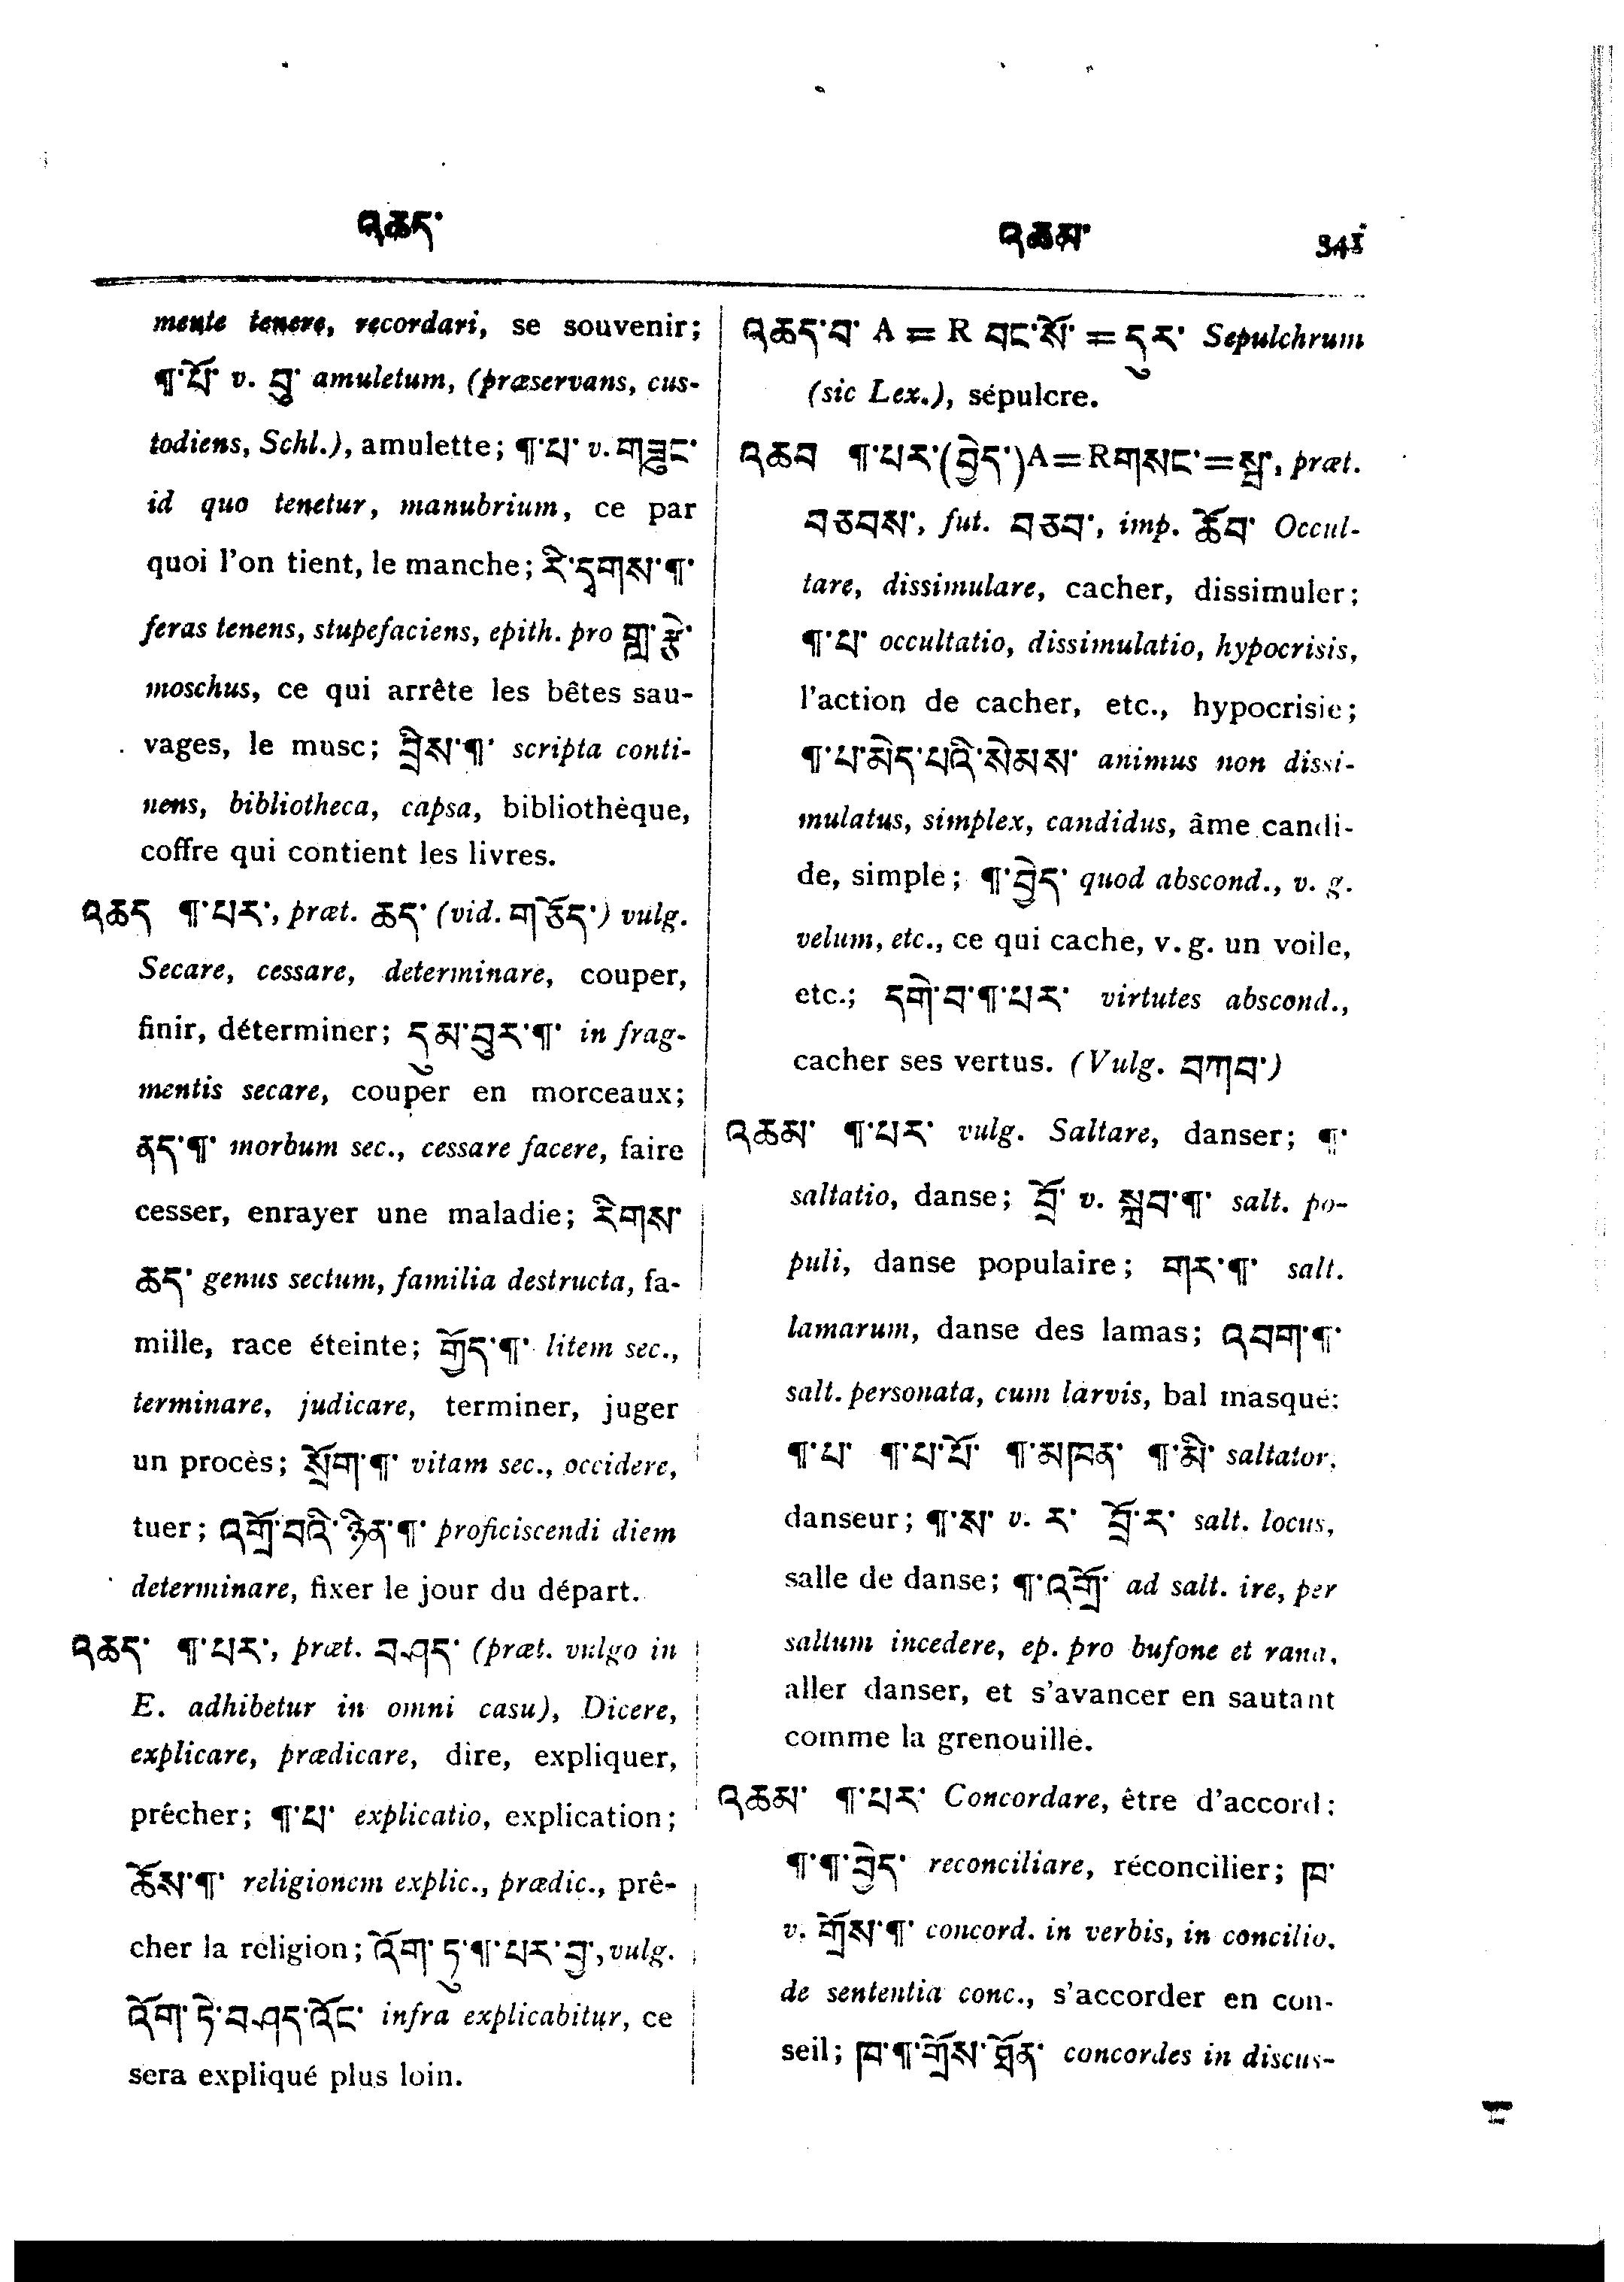 འཆད་
འཆམ་ 341
mente tenere, recordari, se souvenir;
¶་པོ་ v. བུ་ amuletum, (præservans, cus-
todiens, Schl.), amulette; ¶་པ་ v. གཟུང་
id quo tenetur, manubrium, ce par
quoi l'on tient, le manche; རི་དྭགས་¶་
feras tenens, stupefaciens, epith. pro གླ་རྩི་
moschus, ce qui arrête les bêtes sau-
vages, le musc; བྲིས་¶་ scripta conti-
nens, bibliotheca, capsa, bibliothèque,
coffre qui contient les livres.
འཆད ¶་པར་, præt. ཆད་ (vid. གཅོད་) vulg.
Secare, cessare, determinare, couper,
finir, déterminer; དུམ་བུར་¶་ in frag-
mentis secare, couper en morceaux;
ནད་¶་ morbum sec., cessare facere, faire
cesser, enrayer une maladie; རིགས་
ཆད་ genus sectum, familia destructa, fa-
mille, race éteinte; གྱོད་¶་ litem sec.,
terminare, judicare, terminer, juger
un procès; སྲོག་¶་ vitam sec., occidere,
tuer; འགྲོ་བའི་ཉིན་¶་ proficiscendi diem
determinare, fixer le jour du départ.
འཆད་ ¶་པར་, præt. བཤད་ (præt. vulgo in
E. adhibetur in omni casu), Dicere,
explicare, prædicare, dire, expliquer,
prêcher; ¶་པ་ explicatio, explication;
ཆོས་¶་ religionem explic., prædic., prê-
cher la religion; འོག་ཏུ་¶་པར་བྱ་, vulg.
འོག་ཏེ་བཤད་འོང་ infra explicabitur, ce
sera expliqué plus loin.
འཆད་བ་ A = R བང་སོ་ = དུར་ Sepulchrum
(sic Lex.), sépulcre.
འཆབ ¶་པར་(བྱེད་) A=R གསང་=སྦ་, præt.
བཅབས་, fut. བཅབ་, imp. ཆོབ་ Occul-
tare, dissimulare, cacher, dissimuler;
¶་པ་ occultatio, dissimulatio, hypocrisis,
l'action de cacher, etc., hypocrisie;
¶་པ་མེད་པའི་སེམས་ animus non dissi-
mulatus, simplex, candidus, âme candi-
de, simple; ¶་བྱེད་ quod abscond., v. g.
velum, etc., ce qui cache, v. g. un voile,
etc.; དགེ་བ་¶་པར་ virtutes abscond.,
cacher ses vertus. (Vulg. བཀབ་)
འཆམ་ ¶་པར་ vulg. Saltare, danser; ¶་
saltatio, danse; བྲོ་ v. སྐབ་¶་ salt. po-
puli, danse populaire; གར་¶་ salt.
lamarum, danse des lamas; འབག་¶་
salt. personata, cum larvis, bal masqué;
¶་པ་ ¶་པ་པོ་ ¶་མཁན་ ¶་མི་ saltator,
danseur; ¶་ས་ v. ར་ བྲོ་ར་ salt. locus,
salle de danse; ¶་འགྲོ་ ad salt. ire, per
saltum incedere, ep. pro bufone et rana,
aller danser, et s'avancer en sautant
comme la grenouille.
འཆམ་ ¶་པར་ Concordare, être d'accord;
¶་¶་བྱེད་ reconciliare, réconcilier; ཁ་
v. གྲོས་¶་ concord. in verbis, in concilio,
de sententia conc., s'accorder en con-
seil; ཁ་¶་གྲོས་ཐོན་ concordes in discus-